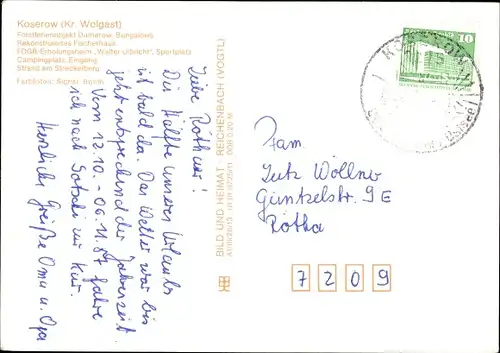 Koserow (Kr. Wolgast)
Forsterferienobjekt Damerow, Bungalows
Rekonstruiertes Fischerhaus
FDGB-Erholungsheim „Walter Ulbricht“, Sportplatz
Campingplatz, Eingang
Strand am Streckelberg
Farbfotos: Signer, Berlin
BILD UND HEIMAT REICHENBACH (VOGTL)
DDR 0,20 M
Liebe Röthaer!
Die Hälfte unseres Urlaubs
ist bald da. Das Wetter war bis
jetzt entsprechend der Jahreszeit.
Vom 12.10. - 06.11.87 fahre
ich nach Sotschi zur Kur.
Herzliche Grüße Oma u. Opa
10
KOSEROW
Fam.
Lutz Wöllner
Güntzelstr. 9E
Rötha
7209